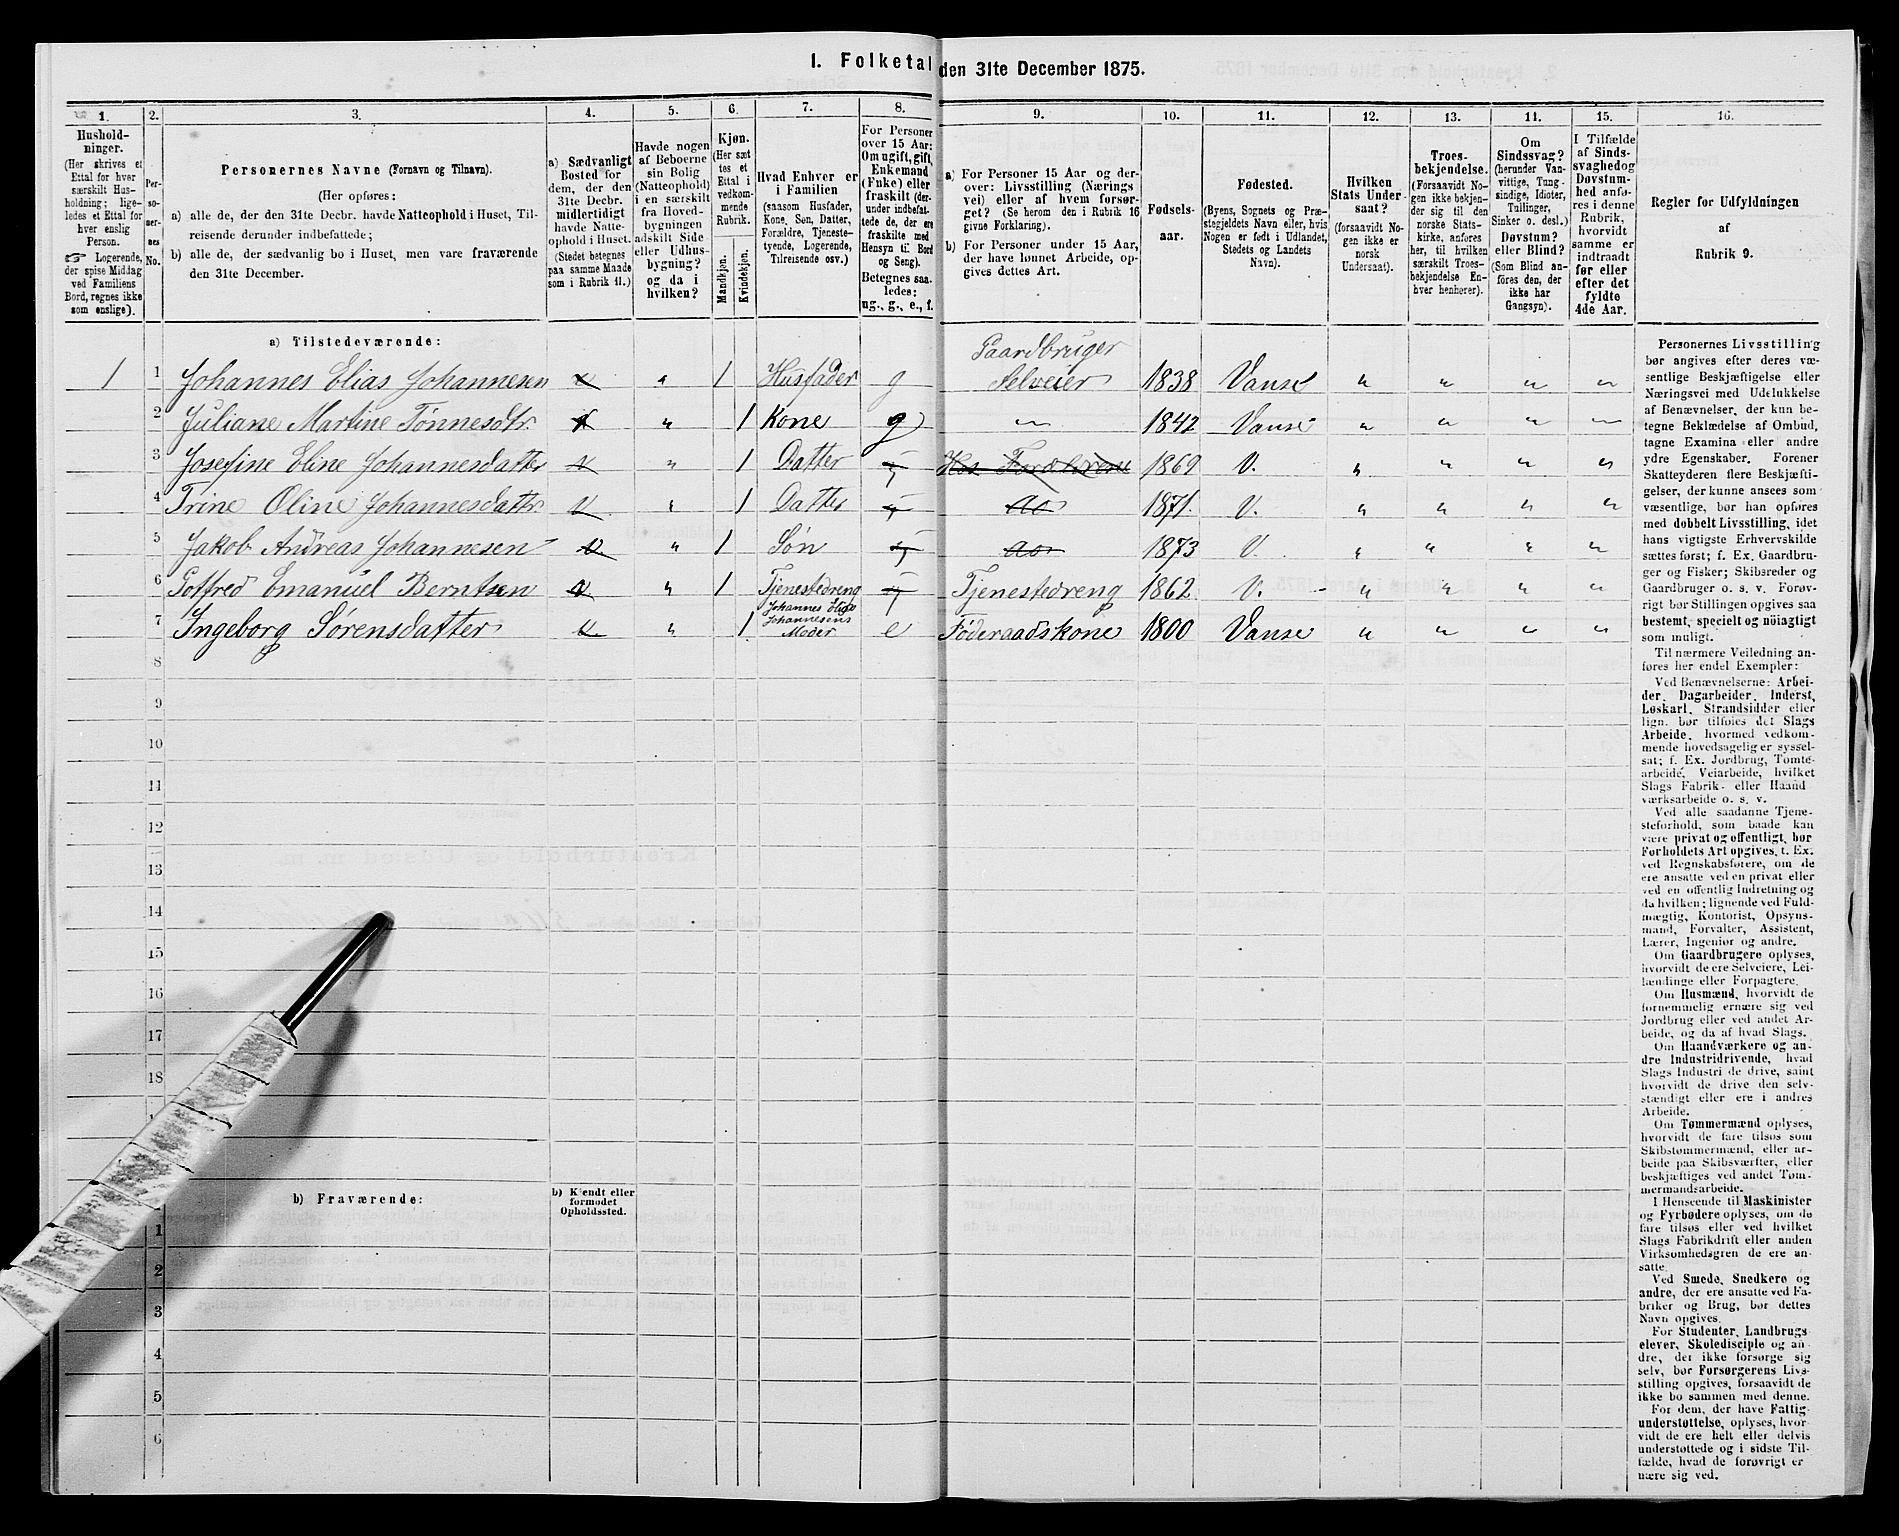 I. Folketal den 31te December 1875.
1. 2. 3. 4. 5. 6. 7. 8. 9. 10. 11. 12. 13. 14. 15. 16.
Hushold-
ninger.
(Her skrives et
Ettal for hver
særskilt Hus-
holdning; lige-
ledes et Ettal for
hver enslig
Person.
☞ Logerende,
der spise Middag
ved Familiens
Bord, regnes ikke
som enslige).
Per-
so-
ner-
nes
No.
Personernes Navne (Fornavn og Tilnavn).
(Her opføres:
a) alle de, der den 31te Decbr. havde Natteophold i Huset, Til-
reisende derunder indbefattede;
b) alle de, der sædvanlig bo i Huset, men vare fraværende
den 31te December.
a) Sædvanligt
Bosted for
dem, der den
31te Decbr.
midlertidigt
havde Natte-
ophold i Huset.
(Stedet betegnes
paa samme Maade
som i Rubrik 11.)
Havde nogen
af Beboerne
sin Bolig
(Natteophold)
i en særskilt
fra Hoved-
bygningen
adskilt Side
eller Udhus-
bygning?
og da i
hvilken?
Kjøn.
(Her sæt
tes et
Ettal i
vedkom-
mende
Rubrik.
Mandkjøn.
Kvindekjøn.
Hvad Enhver er
i Familien
(saasom Husfader,
Kone, Søn, Datter,
Forældre, Tjeneste-
tyende, Logerende,
Tilreisende osv.)
For Personer
over 15 Aar:
Om ugift, gift,
Enkemand
(Enke) eller
fraskilt (der-
under indbefat-
tede de, der ere
fraskilte med
Hensyn til Bord
og Seng).
Betegnes saa-
ledes:
ug., g., e., f.
a) For Personer 15 Aar og der-
over: Livsstilling (Nærings
vei) eller af hvem forsør-
get? (Se herom den i Rubrik 16
givne Forklaring).
b) For Personer under 15 Aar,
der have lønnet Arbeide, op-
gives dettes Art.
Fødsels-
aar.
Fødested.
(Byens, Sognets og Præ-
stegjeldets Navn eller, hvis
Nogen er født i Udlandet,
Stedets og Landets
Navn).
Hvilken
Stats Under-
saat?
(forsaavidt No-
gen ikke er
norsk
Undersaat).
Troes-
bekjendelse.
(Forsaavidt No-
gen ikke bekjen-
der sig til den
norske Stats-
kirke, anføres
her, til hvilken
særskilt Troes-
bekjendelse En-
hver henhører).
Om
Sindssvag?
(herunder Van-
vittige, Tung-
sindige, Idioter,
Tullinger,
Sinker o. desl.)
Døvstum?
eller Blind?
(Som Blind an-
føres den, der
ikke har
Gangsyn).
I Tilfælde
af Sinds-
svaghed og
Døvstum-
hed anfø-
res i denne
Rubrik,
hvorvidt
samme er
indtraadt
før eller
efter det
fyldte
4de Aar.
Regler for Udfyldningen
af
Rubrik 9.
a) Tilstedeværende:
Gaardbruger
1 1 Johannes Elias Johannesen " 1 Husfader g Selveier 1838 Vanse " " " "
2 Juliane Martine Tønnesdtr. " 1 Kone g " 1842 Vanse " " " "
3 Josefine Eline Johannesdatter " 1 Datter Hos Forældrene 1869 V. " " " "
4 Trine Oline Johannesdattr " 1 Datter do 1871. V. " " " "
5 Jakob Andreas Johannesen " 1 Søn do 1873 V. " " " "
6 Gotfred Emanuel Berntsen " 1 Tjenestedreng Tjenestedreng 1862 V. " " " "
7 Ingeborg Sørensdatter " 1 Johannes Elias
Johannesens
Moder e Føderaadskone 1800 Vanse " " " "
8
9
10
11
12
13
14
15
16
17
18
b) Fraværende:
b) Kjendt eller
formodet
Opholdssted.
1
2
3
4
5
6
Personernes Livsstilling
bør angives efter deres væ-
sentlige Beskjæftigelse eller
Næringsvei med Udelukkelse
af Benævnelser, der kun be-
tegne Beklædelse af Ombud,
tagne Examina eller andre
ydre Egenskaber. Forener
Skatteyderen flere Beskjæfti-
gelser, der kunne ansees som
væsentlige, bør han opføres
med dobbelt Livsstilling, idet
hans vigtigste Erhvervskilde
sættes først; f. Ex. Gaardbru-
ger og Fisker; Skibsreder og
Gaardbruger o. s. v. Forøv-
rigt bør Stillingen opgives saa
bestemt, specielt og nöiagtigt
som muligt.
Til nærmere Veiledning an-
føres her endel Exempler:
Ved Benævnelserne: Arbei-
der, Dagarbeider, Inderst,
Løskarl, Strandsidder eller
lign. bør tilføies det Slags
Arbeide, hvormed vedkom-
mende hovedsagelig er syssel-
sat; f. Ex. Jordbrug, Tomte-
arbeide, Veiarbeide, hvilket
Slags Fabrik- eller Haand
værksarbeide o. s. v.
Ved alle saadanne Tjene-
steforhold, som baade kan
være privat og offentligt, bør
Forholdets Art opgives, t. Ex.
ved Regnskabsførere, om de
ere ansatte ved en privat eller
ved en offentlig Indretning og
da hvilken; lignende ved Fuld-
mægtig, Kontorist, Opsyns-
mand, Forvalter, Assistent,
Lærer, Ingeniør og andre.
Om Gaardbrugere oplyses,
hvorvidt de ere Selveiere, Lei-
lændinge eller Forpagtere.
Om Husmænd, hvorvidt de
fornemmelig ernære sig ved
Jordbrug eller ved andet Ar-
beide, og da af hvad Slags.
Om Haandværkere og an-
dre Industridrivende, hvad
Slags Industri de drive, samt
hvorvidt de drive den selv-
stændigt eller ere i andres
Arbeide.
Om Tømmermænd oplyses,
hvorvidt de fare tilsøs som
Skibstømmermænd, eller ar-
beide paa Skibsværfter, eller
beskjæftiges ved andet Tøm-
mermandsarbeide.
I Henseende til Maskinister
og Fyrbødere oplyses, om de
fare tilsøs eller ved hvilket
Slags Fabrikdrift eller anden
Virksomhedsgren de ere an-
satte.
Ved Smede, Snedkere og
andre, der ere ansatte ved Fa-
briker og Brug, bør dettes
Navn opgives.
For Studenter, Landbrugs
elever, Skoledisciple og an-
dre, der ikke forsørge sig
selv, bør Forsørgerens Livs-
stilling opgives, forsaavidt de
ikke bo sammen med denne.
For dem, der have Fattig-
understøttelse, oplyses, hvor-
vidt de ere helt eller delvis
understøttede og i sidste Til-
fælde, hvad de forøvrigt er
nære sig ved.